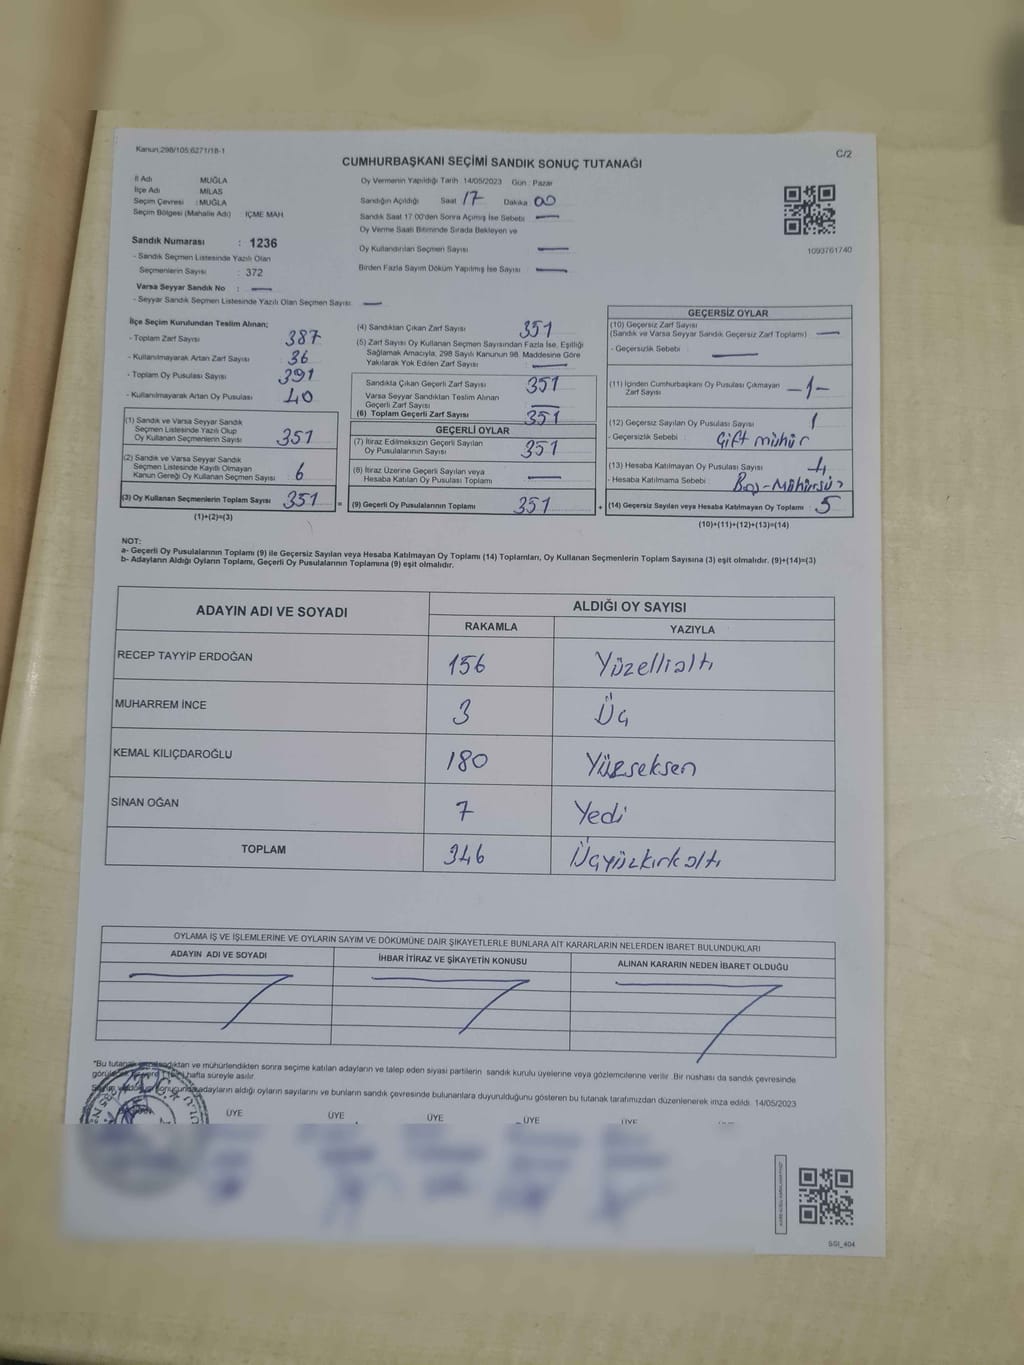 Kanun;298/105;6271/18-1
C/2
CUMHURBAŞKANI SEÇİMİ SANDIK SONUÇ TUTANAĞI
İl Adı MUĞLA
İlçe Adı MİLAS
Seçim Çevresi : MUĞLA
Seçim Bölgesi (Mahalle Adı) : İÇME MAH
Sandık Numarası : 1236
- Sandık Seçmen Listesinde Yazılı Olan
Seçmenlerin Sayısı : 372
Varsa Seyyar Sandık No : —
- Seyyar Sandık Seçmen Listesinde Yazılı Olan Seçmen Sayısı: —
Oy Vermenin Yapıldığı Tarih : 14/05/2023 Gün : Pazar
Sandığın Açıldığı Saat 17 Dakika 00
Sandık Saat 17:00'den Sonra Açılmış İse Sebebi —
Oy Verme Saati Bitiminde Sırada Bekleyen ve
Oy Kullandırılan Seçmen Sayısı —
Birden Fazla Sayım Döküm Yapılmış İse Sayısı —
1093761740
İlçe Seçim Kurulundan Teslim Alınan;
- Toplam Zarf Sayısı : 387
- Kullanılmayarak Artan Zarf Sayısı : 36
- Toplam Oy Pusulası Sayısı : 391
- Kullanılmayarak Artan Oy Pusulası : 40
(1) Sandık ve Varsa Seyyar Sandık
Seçmen Listesinde Yazılı Olup
Oy Kullanan Seçmenlerin Sayısı : 351
(2) Sandık ve Varsa Seyyar Sandık
Seçmen Listesinde Kayıtlı Olmayan
Kanun Gereği Oy Kullanan Seçmen Sayısı : 6
(3) Oy Kullanan Seçmenlerin Toplam Sayısı : 351
(1)+(2)=(3)
(4) Sandıktan Çıkan Zarf Sayısı : 351
(5) Zarf Sayısı Oy Kullanan Seçmen Sayısından Fazla İse, Eşitliği
Sağlamak Amacıyla, 298 Sayılı Kanunun 98. Maddesine Göre
Yakılarak Yok Edilen Zarf Sayısı : —
Sandıkta Çıkan Geçerli Zarf Sayısı : 351
Varsa Seyyar Sandıktan Teslim Alınan
Geçerli Zarf Sayısı : —
(6) Toplam Geçerli Zarf Sayısı : 351
GEÇERLİ OYLAR
(7) İtiraz Edilmeksizin Geçerli Sayılan
Oy Pusulalarının Sayısı : 351
(8) İtiraz Üzerine Geçerli Sayılan veya
Hesaba Katılan Oy Pusulası Toplamı : —
= (9) Geçerli Oy Pusulalarının Toplamı : 351 +
GEÇERSİZ OYLAR
(10) Geçersiz Zarf Sayısı
(Sandık ve Varsa Seyyar Sandık Geçersiz Zarf Toplamı) : —
- Geçersizlik Sebebi : —
(11) İçinden Cumhurbaşkanı Oy Pusulası Çıkmayan
Zarf Sayısı : —1—
(12) Geçersiz Sayılan Oy Pusulası Sayısı : 1
- Geçersizlik Sebebi : Çift mühür
(13) Hesaba Katılmayan Oy Pusulası Sayısı : 4
- Hesaba Katılmama Sebebi : Boş-Mühürsüz
(14) Geçersiz Sayılan veya Hesaba Katılmayan Oy Toplamı : 5
(10)+(11)+(12)+(13)=(14)
NOT:
a- Geçerli Oy Pusulalarının Toplamı (9) ile Geçersiz Sayılan veya Hesaba Katılmayan Oy Toplamı (14) Toplamları, Oy Kullanan Seçmenlerin Toplam Sayısına (3) eşit olmalıdır. (9)+(14)=(3)
b- Adayların Aldığı Oyların Toplamı, Geçerli Oy Pusulalarının Toplamına (9) eşit olmalıdır.
ADAYIN ADI VE SOYADI
ALDIĞI OY SAYISI
RAKAMLA YAZIYLA
RECEP TAYYİP ERDOĞAN 156 Yüzellialtı
MUHARREM İNCE 3 Üç
KEMAL KILIÇDAROĞLU 180 Yüzseksen
SİNAN OĞAN 7 Yedi
TOPLAM 346 Üçyüzkırkaltı
OYLAMA İŞ VE İŞLEMLERİNE VE OYLARIN SAYIM VE DÖKÜMÜNE DAİR ŞİKAYETLERLE BUNLARA AİT KARARLARIN NELERDEN İBARET BULUNDUKLARI
ADAYIN ADI VE SOYADI İHBAR İTİRAZ VE ŞİKAYETİN KONUSU ALINAN KARARIN NEDEN İBARET OLDUĞU
*Bu tutanak imzalandıktan ve mühürlendikten sonra seçime katılan adayların ve talep eden siyasi partilerin sandık kurulu üyelerine veya gözlemcilerine verilir. Bir nüshası da sandık çevresinde
hafta süreyle asılır.
adayların aldığı oyların sayılarını ve bunların sandık çevresinde bulunanlara duyurulduğunu gösteren bu tutanak tarafımızdan düzenlenerek imza edildi. 14/05/2023
ÜYE ÜYE ÜYE ÜYE ÜYE
SGI_404